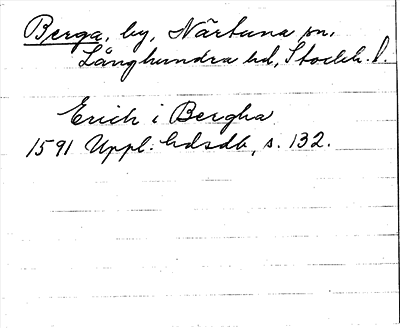 Berga, by, Närtuna sn,
Långhundra hd, Stockh. l.
Erich i Bergha
1591 Uppl. hdsdb, s. 132.